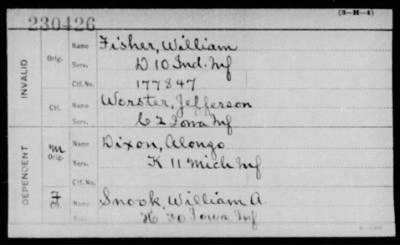 (3-H-4)
230426
INVALID
Orig.
Name Fisher, William
Serv. D 10 Ind. Inf
Ctf. No. 177847
Ctf.
Name Worster, Jefferson
Serv. C 2 Iowa Inf
DEPENDENT
M
Orig.
Name Dixon, Alonzo
Serv. K 11 Mich Inf
Ctf. No.
Name Snook, William A
Serv. H 30 Iowa Inf